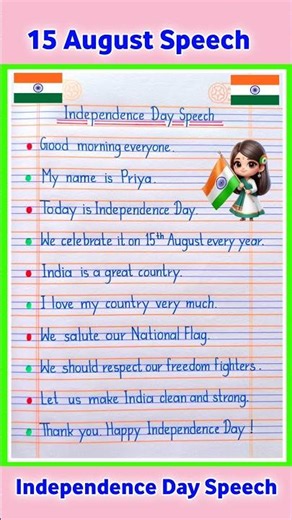 15 August Speech
Independence Day Speech
Good morning everyone.
My name is Priya.
Today is Independence Day.
We celebrate it on 15th August every year.
India is a great country.
I love my country very much.
We salute our National Flag.
We should respect our freedom fighters.
Let us make India clean and strong.
Thank you. Happy Independence Day!
Independence Day Speech